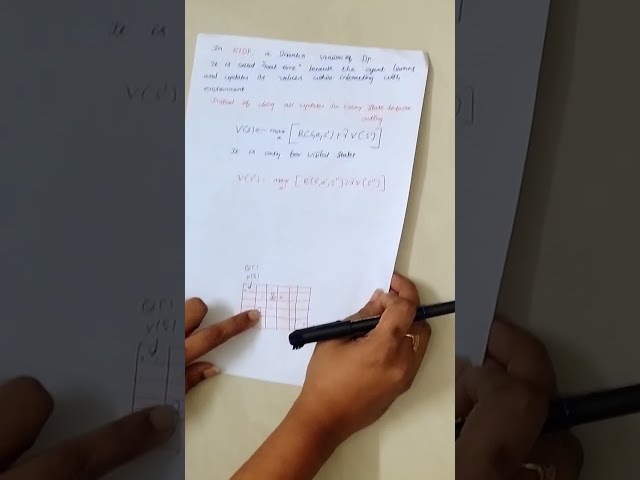 In RTDP, a Version of Dp
It is called "real time" because the agent learns
and updates its values while interacting with
environment
Instead of doing all updates in every state before
acting
V(s) ← max a [R(s,a,s') + γ V(s')]
It is only for visited states
V(s') = max a [R(s',a',s'') + γ V(s'')]
V(s)